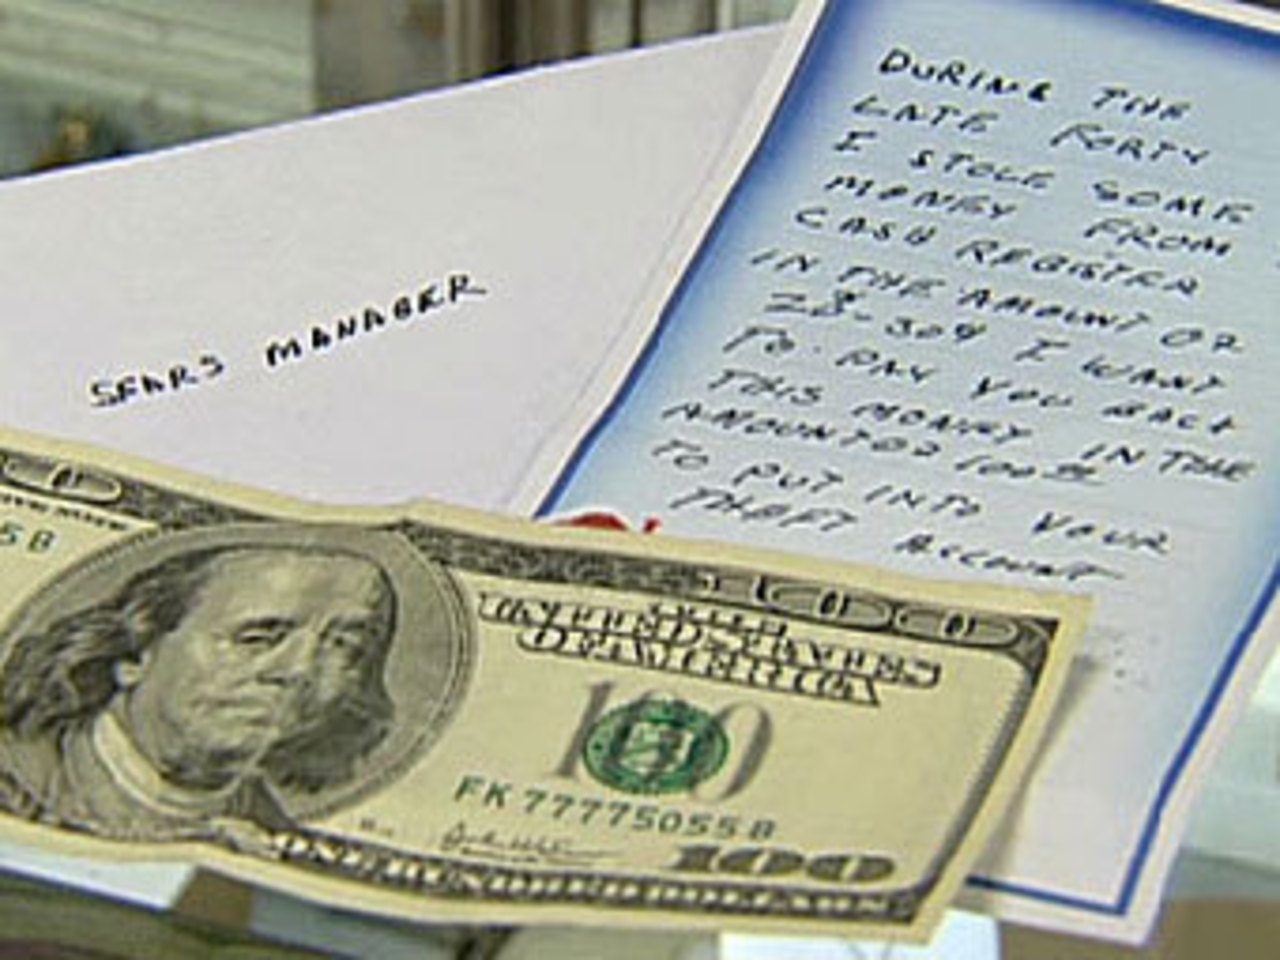 SEARS MANAGER
DURING THE
LATE FORTY
I STOLE SOME
MONEY FROM
CASH REGISTRA
IN THE AMOUNT OF
I WANT
TO PAY YOU BACK
THIS MONEY IN THE
AMOUNT OF 100
TO PUT INTO YOUR
THEFT ACCOUNT
58
THE UNITED STATES
OF AMERICA
100
FK 77775055 B
100
ONE HUNDRED DOLLARS